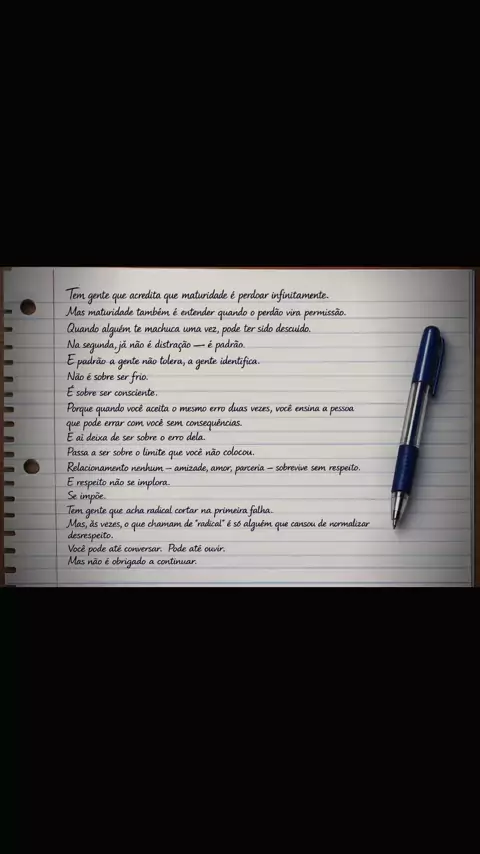 Tem gente que acredita que maturidade é perdoar infinitamente.
Mas maturidade também é entender quando o perdão vira permissão.
Quando alguém te machuca uma vez, pode ter sido descuido.
Na segunda, já não é distração — é padrão.
E padrão a gente não tolera, a gente identifica.
Não é sobre ser frio.
É sobre ser consciente.
Porque quando você aceita o mesmo erro duas vezes, você ensina a pessoa
que pode errar com você sem consequências.
E aí deixa de ser sobre o erro dela.
Passa a ser sobre o limite que você não colocou.
Relacionamento nenhum — amizade, amor, parceria — sobrevive sem respeito.
E respeito não se implora.
Se impõe.
Tem gente que acha radical cortar na primeira falha.
Mas, às vezes, o que chamam de "radical" é só alguém que cansou de normalizar
desrespeito.
Você pode até conversar. Pode até ouvir.
Mas não é obrigado a continuar.